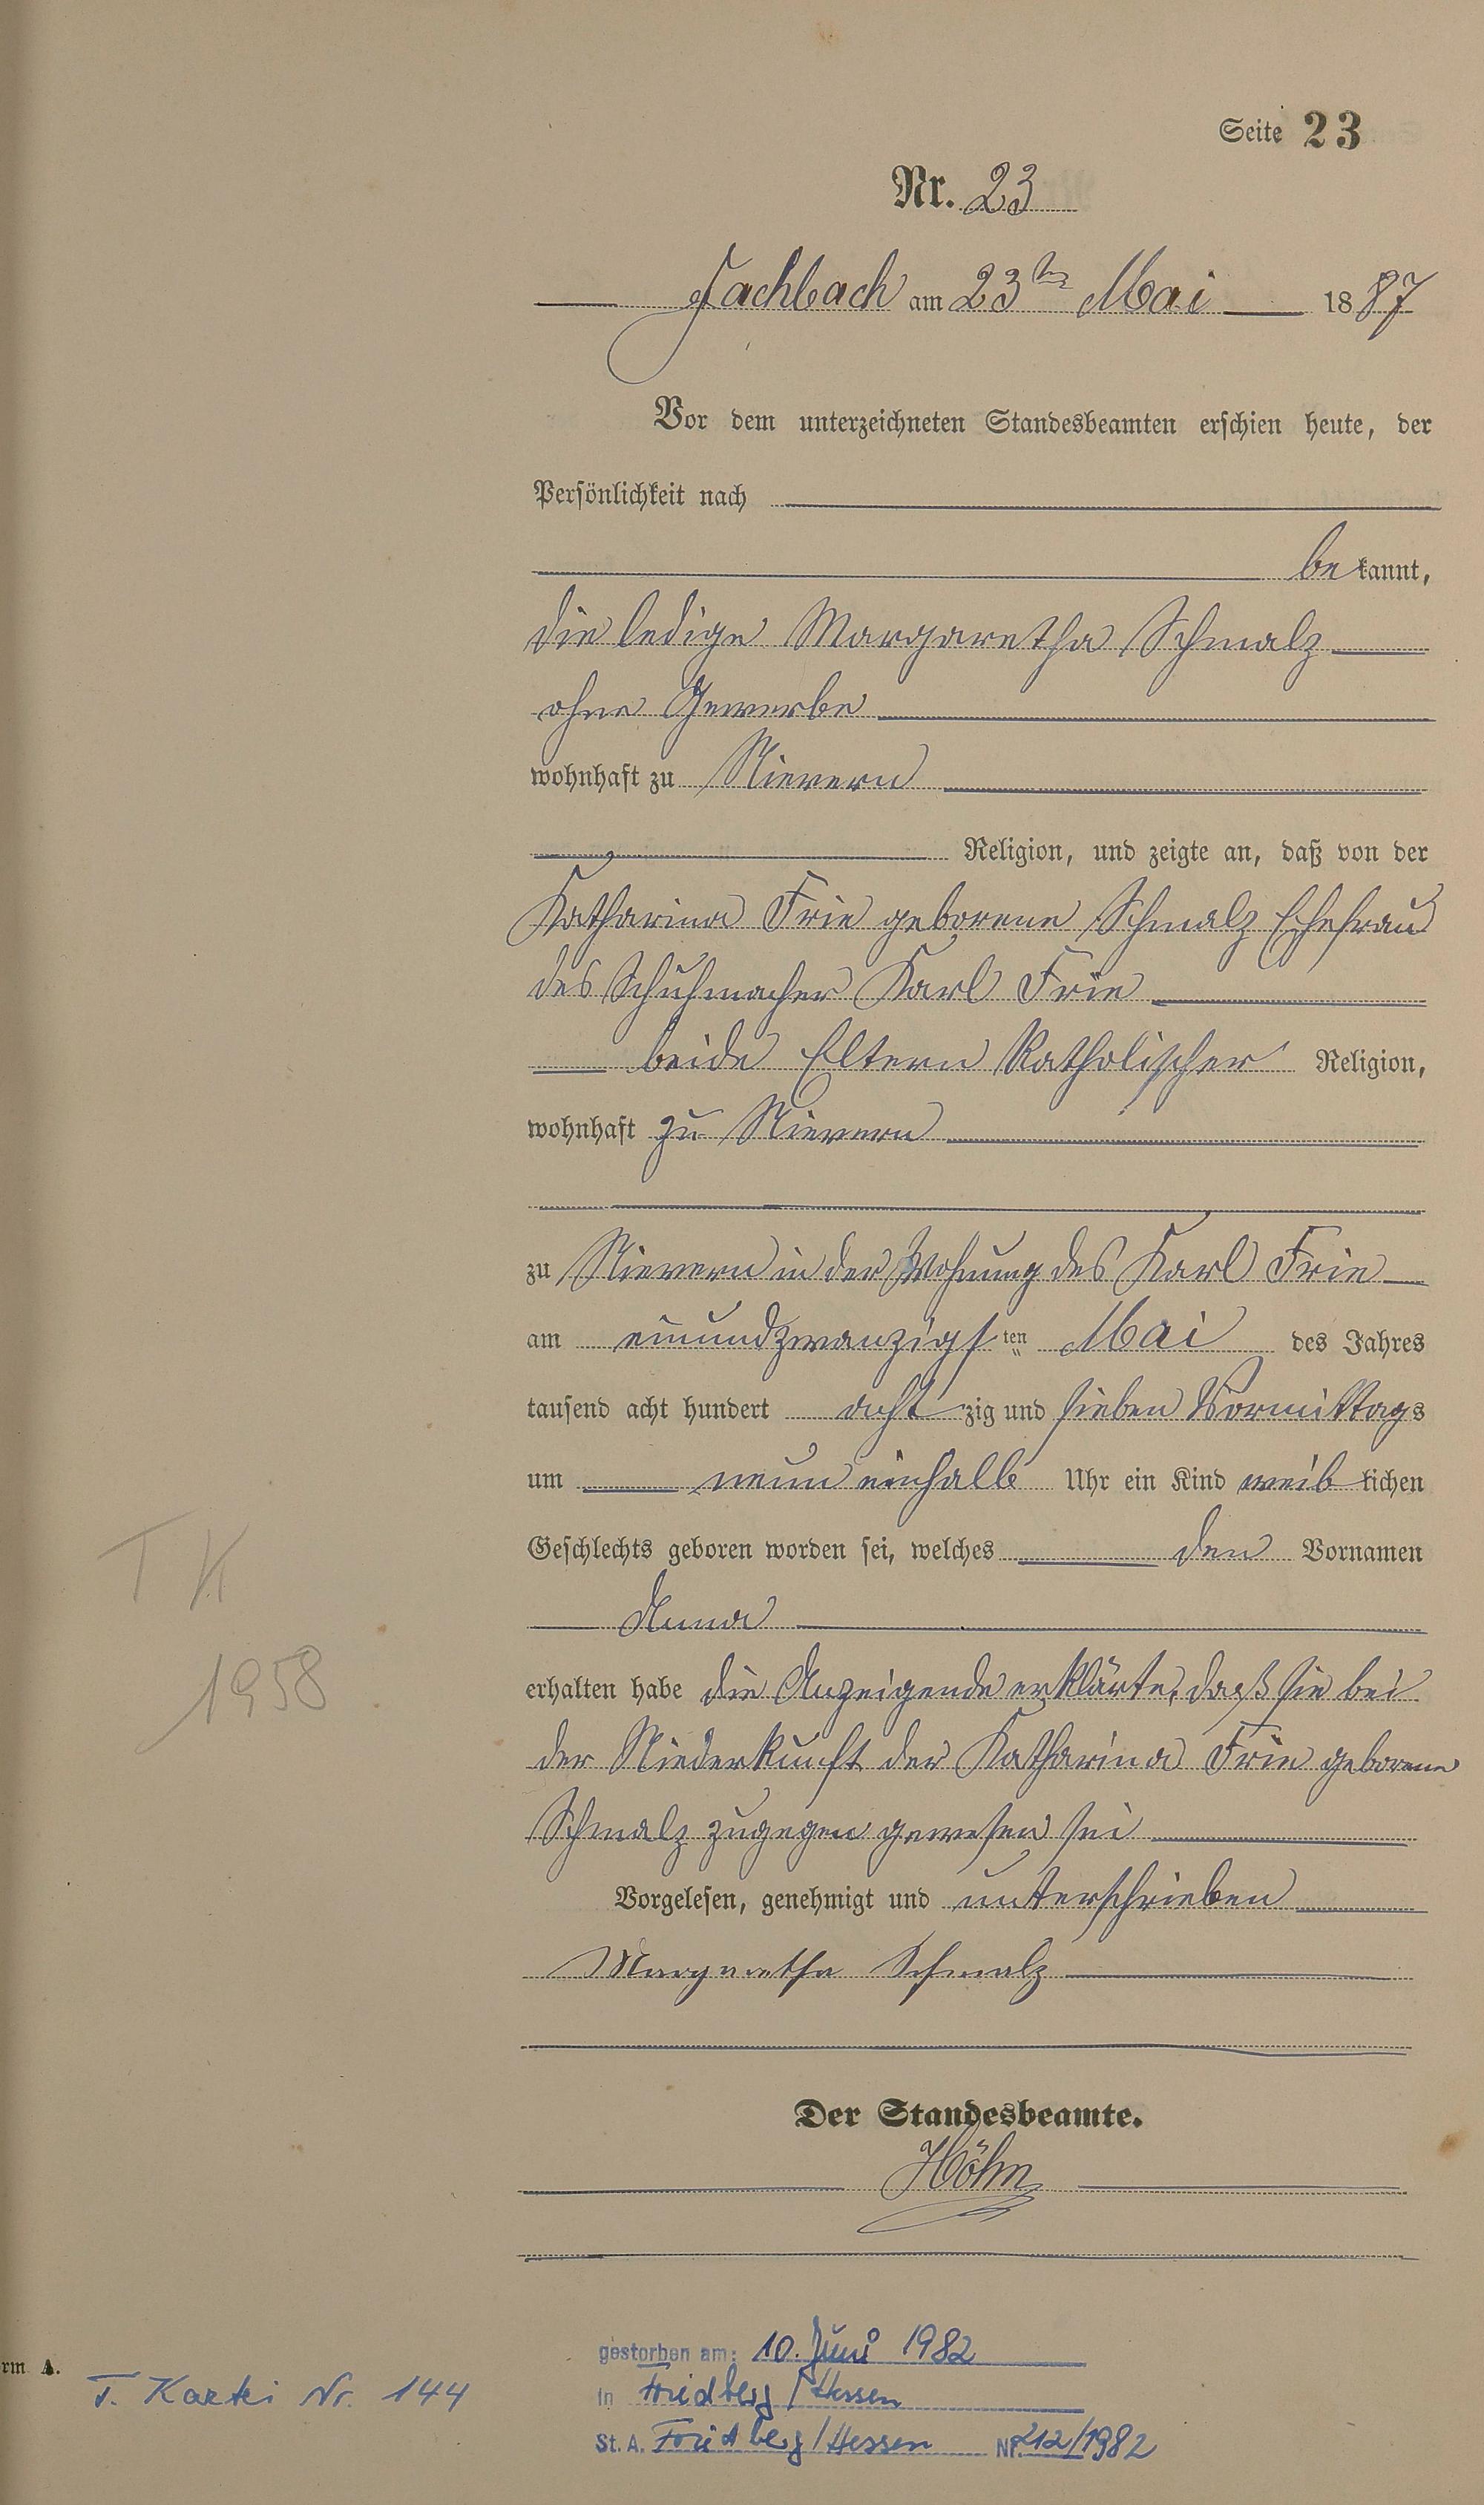 Seite 23
Nr. 23
Fachbach am 23ten Mai 1887
Vor dem unterzeichneten Standesbeamten erschien heute, der
Persönlichkeit nach
bekannt,
die ledige Margaretha Schmalz
ohne Gewerbe
wohnhaft zu Nievern
Religion, und zeigte an, daß von der
Katharina Frie geborene Schmalz Ehefrau
des Schuhmacher Karl Frie
beide Eltern Katholischer Religion,
wohnhaft zu Nievern
zu Nievern in der Wohnung des Karl Frie
am einundzwanzigsten Mai des Jahres
tausend acht hundert achtzig und sieben Vormittags
um neun einhalb Uhr ein Kind weiblichen
Geschlechts geboren worden sei, welches den Vornamen
Anna
erhalten habe die Anzeigende erklärte, daß sie bei
der Niederkunft der Katharina Frie geborene
Schmalz zugegen gewesen sei
Vorgelesen, genehmigt und unterschrieben
Margaretha Schmalz
Der Standesbeamte.
Höhn
T K
1958
rm A.
T. Kartei Nr. 144
gestorben am: 10. Juni 1982
in Friedberg/Hessen
St. A. Friedberg/Hessen Nr. 212/1982